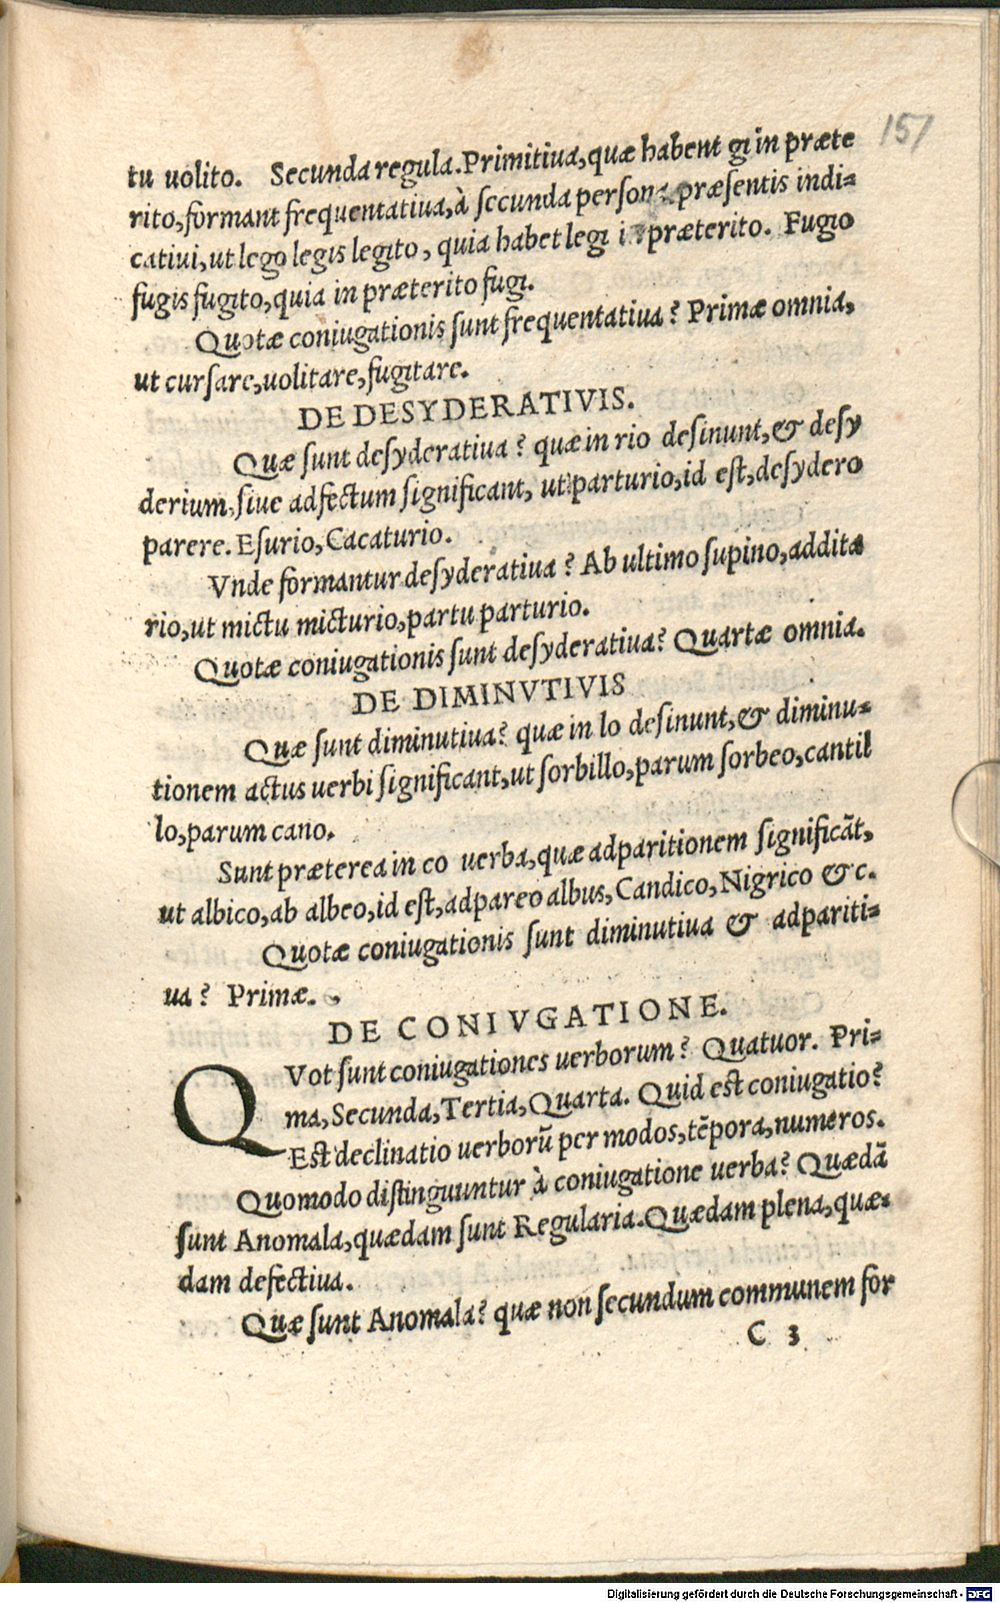 157
tu uolito. Secunda regula. Primitiua, quæ habent gi in præte
rito, formant frequentatiua, à secunda persona præsentis indi=
catiui, ut lego legis legito, quia habet legi i præterito. Fugio
fugis fugito, quia in præterito fugi.
Quotæ coniugationis sunt frequentatiua? Primæ omnia,
ut cursare, uolitare, fugitare.
DE DESYDERATIVIS.
Quæ sunt desyderatiua? quæ in rio desinunt, & desy
derium, siue adfectum significant, ut parturio, id est, desydero
parere. Esurio, Cacaturio.
Vnde formantur desyderatiua? Ab ultimo supino, addita
rio, ut mictu micturio, partu parturio.
Quotæ coniugationis sunt desyderatiua? Quartæ omnia.
DE DIMINVTIVIS
Quæ sunt diminutiua? quæ in lo desinunt, & diminu=
tionem actus uerbi significant, ut sorbillo, parum sorbeo, cantil
lo, parum cano.
Sunt præterea in co uerba, quæ adparitionem significãt,
ut albico, ab albeo, id est, adpareo albus, Candico, Nigrico & c.
Quotæ coniugationis sunt diminutiua & adpariti=
ua? Primæ.
DE CONIVGATIONE.
QVot sunt coniugationes uerborum? Quatuor. Pri=
ma, Secunda, Tertia, Quarta. Quid est coniugatio?
Est declinatio uerborũ per modos, tẽpora, numeros.
Quomodo distinguuntur à coniugatione uerba? Quædã
sunt Anomala, quædam sunt Regularia. Quædam plena, quæ=
dam defectiua.
Quæ sunt Anomala? quæ non secundum communem for
C 3
Digitalisierung gefördert durch die Deutsche Forschungsgemeinschaft - DFG